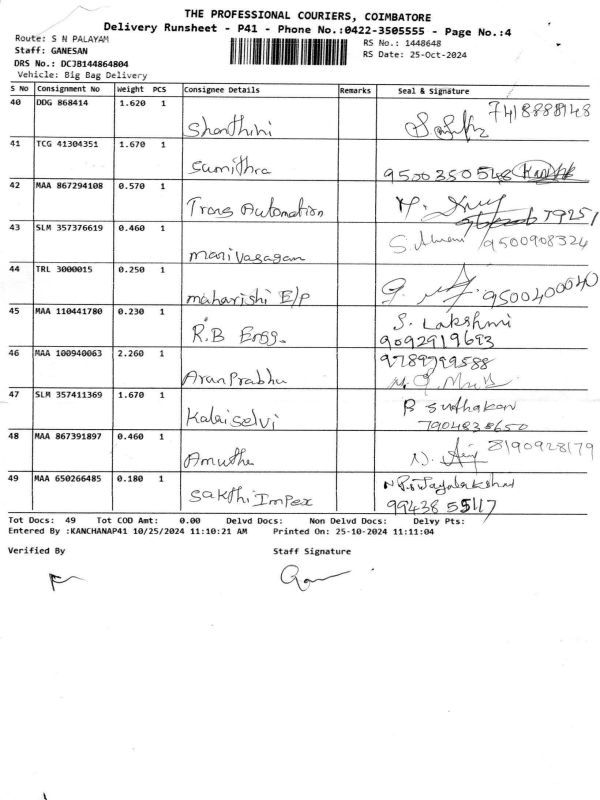 THE PROFESSIONAL COURIERS, COIMBATORE
Delivery Runsheet - P41 - Phone No.:0422-3505555 - Page No.:4
Route: S N PALAYAM
RS No.: 1448648
Staff: GANESAN
RS Date: 25-Oct-2024
DRS No.: DCJB144864804
Vehicle: Big Bag Delivery
S No Consignment No Weight PCS Consignee Details Remarks Seal & Signature
40 DDG 868414 1.620 1 Shanthini 7418888148
41 TCG 41304351 1.670 1 Sumithra 9500350548
42 MAA 867294108 0.570 1 Trans Automation 79251
43 SLM 357376619 0.460 1 manivasagan 9500908324
44 TRL 3000015 0.250 1 maharishi E/P 9500400040
45 MAA 110441780 0.230 1 R.B Engg. S. Lakshmi
9092919693
46 MAA 100940063 2.260 1 Arun Prabhu 9789799588
47 SLM 357411369 1.670 1 Kalaiselvi B Sudhakar
7904838650
48 MAA 867391897 0.460 1 Amutha 8190928179
49 MAA 650266485 0.180 1 Sakthi Impex
99438 55117
Tot Docs: 49 Tot COD Amt: 0.00 Delvd Docs: Non Delvd Docs: Delvy Pts:
Entered By :KANCHANAP41 10/25/2024 11:10:21 AM Printed On: 25-10-2024 11:11:04
Verified By Staff Signature